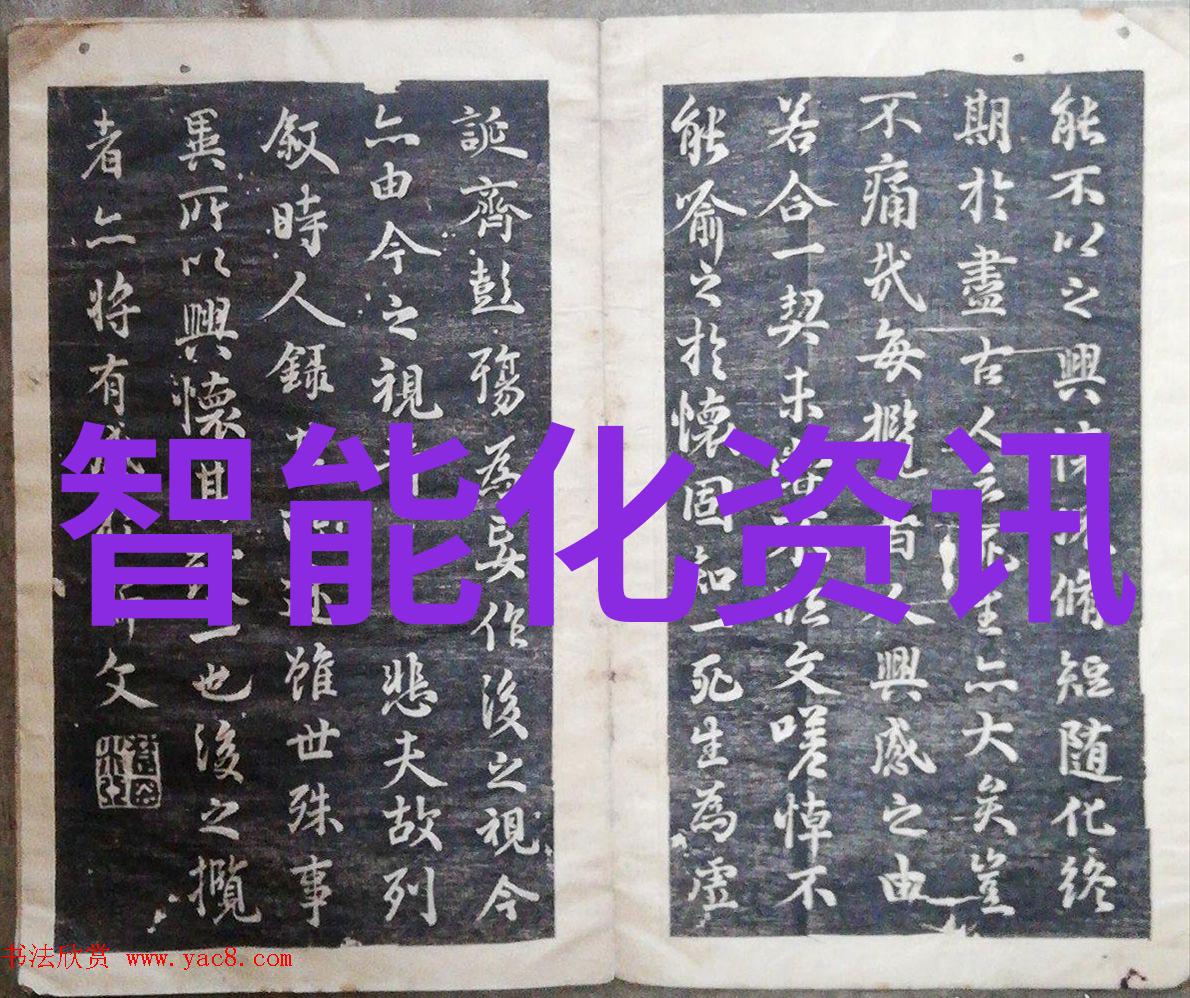 能不以之興懷況脩短随化終
期於盡古人云死生亦大矣豈
不痛哉每攬昔人興感之由
若合一契未嘗不臨文嗟悼不
能喻之於懷固知一死生為虛
誕齊彭殤為妄作後之視今
亦由今之視昔悲夫故列
敘時人錄其所述雖世殊事
異所以興懷其致一也後之攬
者亦將有感於斯文
智能化资讯
书法欣赏 www.yac8.com